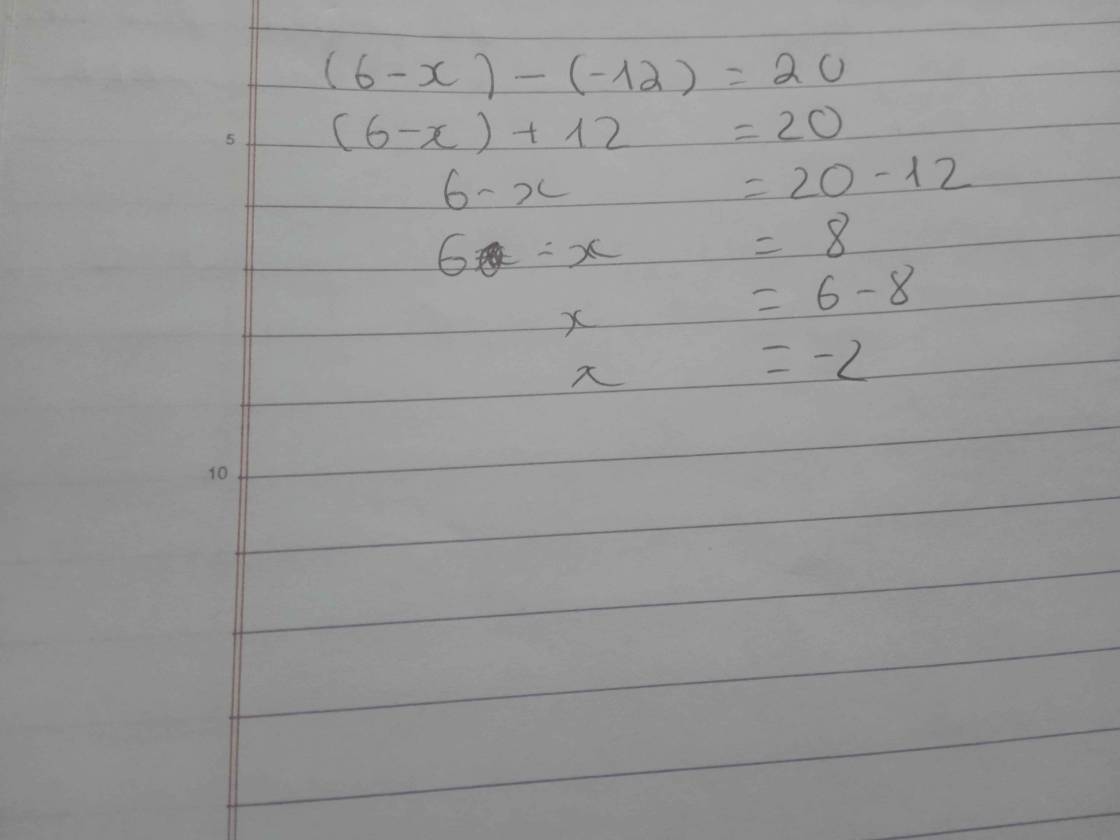 (6-x) - (-12) = 20
5 (6-x) + 12 = 20
6 - x = 20 - 12
6 - x = 8
x = 6 - 8
x = -2
10